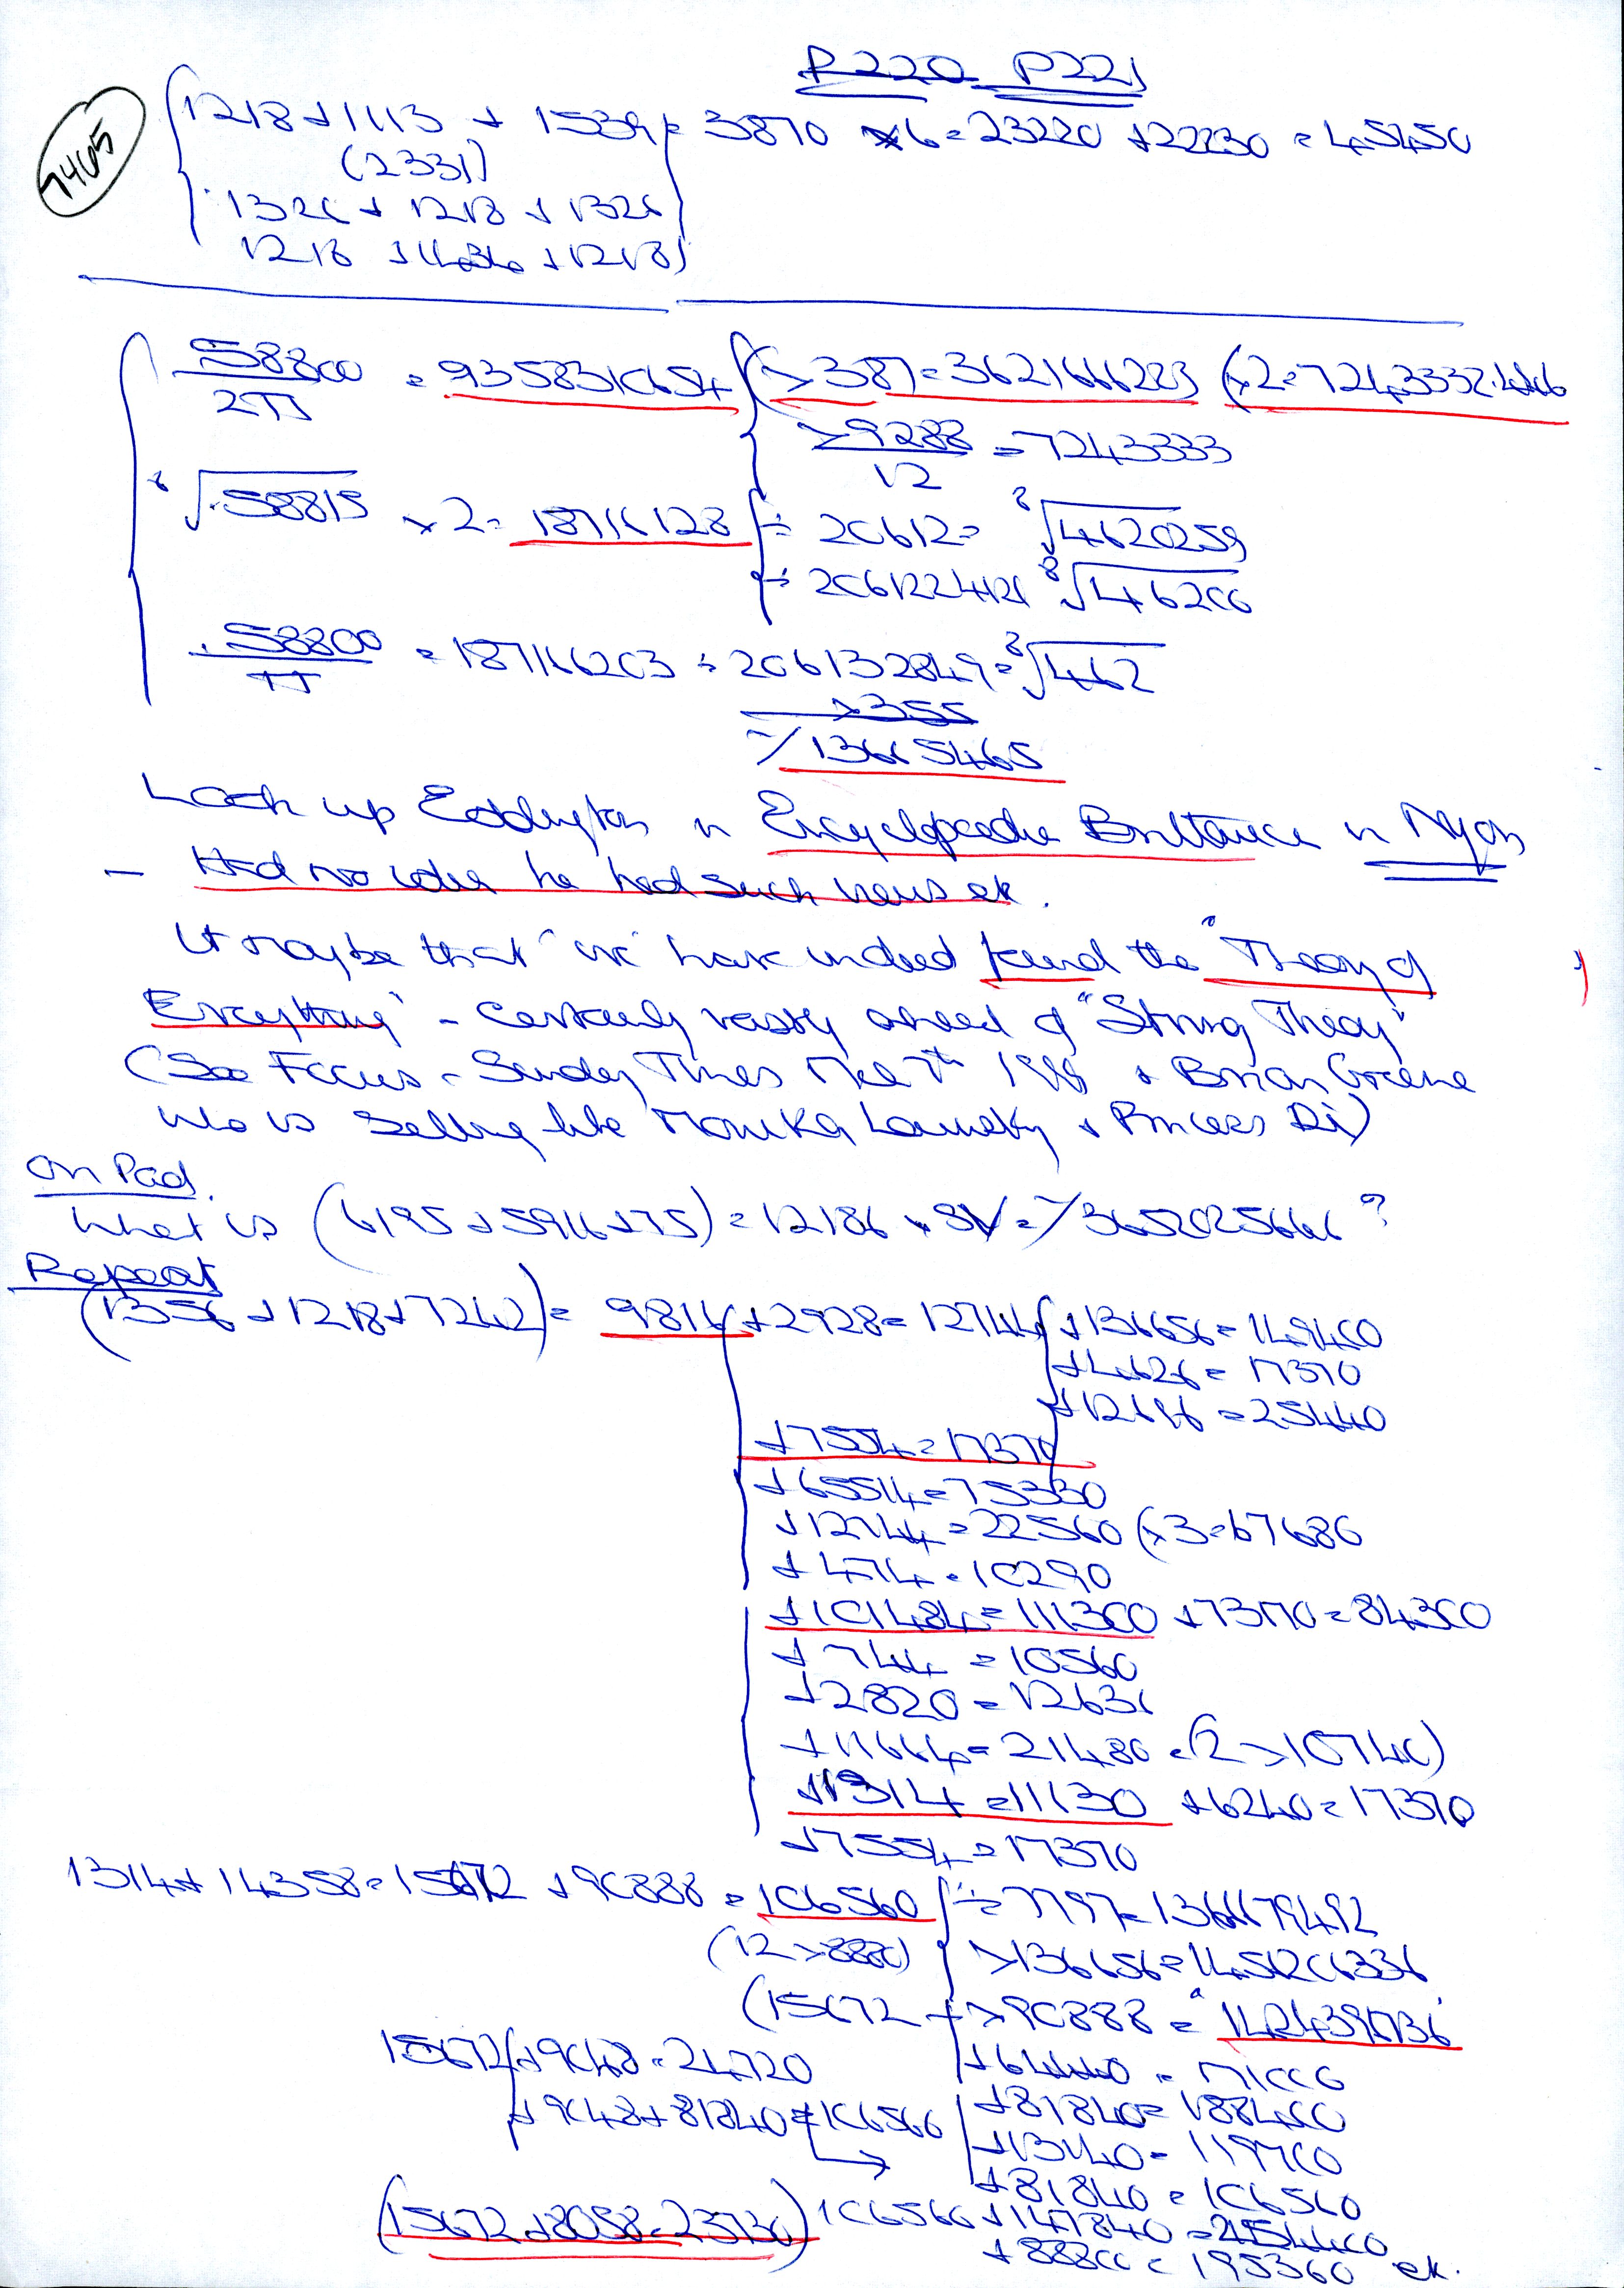 P220 P221
7405
1218 + 1113 + 1539 = 3870 x 6 = 23220 + 22230 = 45450
(2331)
1326 + 1218 + 1326
1218 + 1434 + 1218
58800 / 2π = 9358310654 (x 387) = 3621666223 (x 2 = 7243332.446
x 9288 / 12 = 7243333
8√.58815 x 2 = 18716128 ÷ 20612 = 8√4620259
÷ 2061224121 8√46200
.58800 / π = 187166203 ÷ 2061132849 = 8√462
x 355
√13665465
Look up Eddington in Encyclopaedia Brittanica in Nyon
- Had no idea he had such views etc.
It maybe that "we" have indeed found the "Theory of
Everything" - Certainly vastly ahead of "String Theory"
(See Focus - Sunday Times 7th & Brian Greene
who is selling like Monika Lewinsky & Princess Di)
On Pad.
What is (6195 + 5916 + 75) = 12186 = 365202566 ?
Repeat
(1356 + 1218 + 7242) = 9816 + 2928 = 12744 + 136656 = 149400
+ 4626 = 17370
+ 12696 = 25440
+ 7554 = 17370
+ 65514 = 75330
+ 12744 = 22560 (x 3 = 67680
+ 474 = 10290
+ 101484 = 111300 + 7370 = 84300
+ 744 = 10560
+ 2820 = 12636
+ 11664 = 21480 = (2 x 10740)
+ 1314 = 11130 + 6240 = 17370
+ 7554 = 17370
1314 + 14358 = 15672 + 90888 = 106560 ÷ 7797 = 1366679492
(12 x 8880) x 136656 = 1456206336
(15672 x 90888 = 1424396736
15672 + 9048 = 24720
+ 64440 = 171000
+ 9048 + 81840 = 106560
+ 81840 = 188400
+ 13140 = 119700
+ 81840 = 106560
(15672 + 8058 = 23730) 106560 + 147840 = 254400
+ 88800 = 195360 etc.